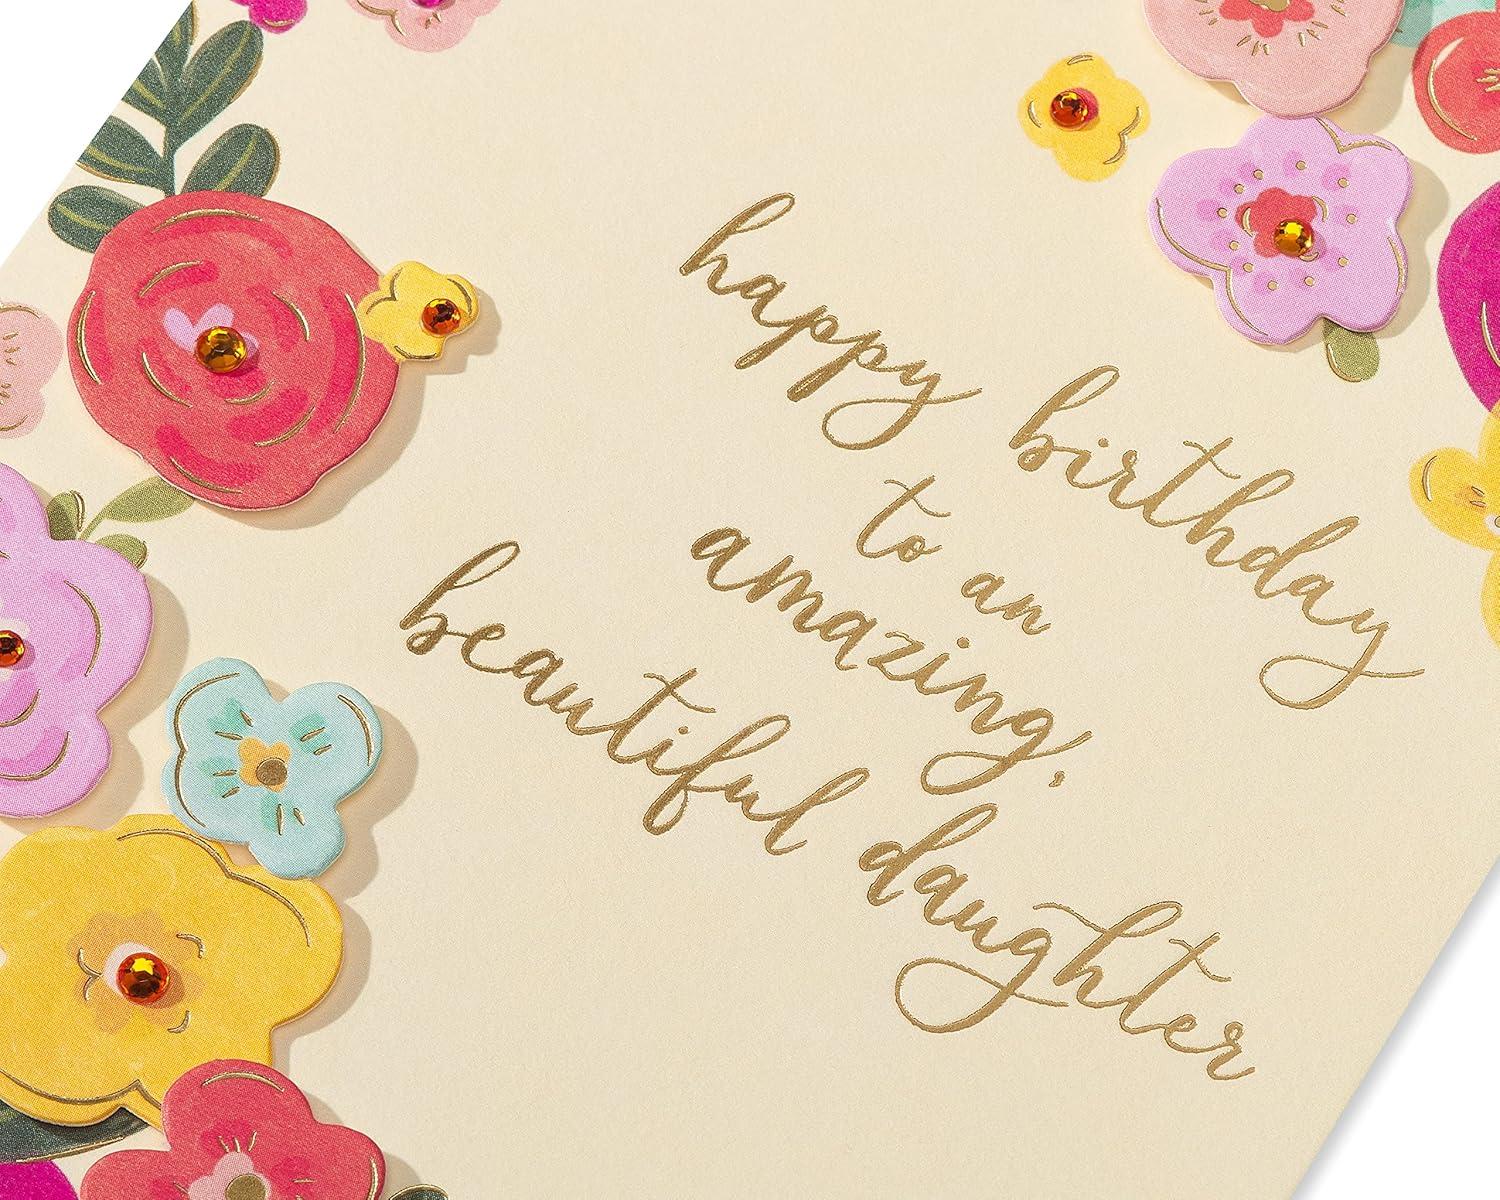 happy birthday
to an
amazing,
beautiful daughter